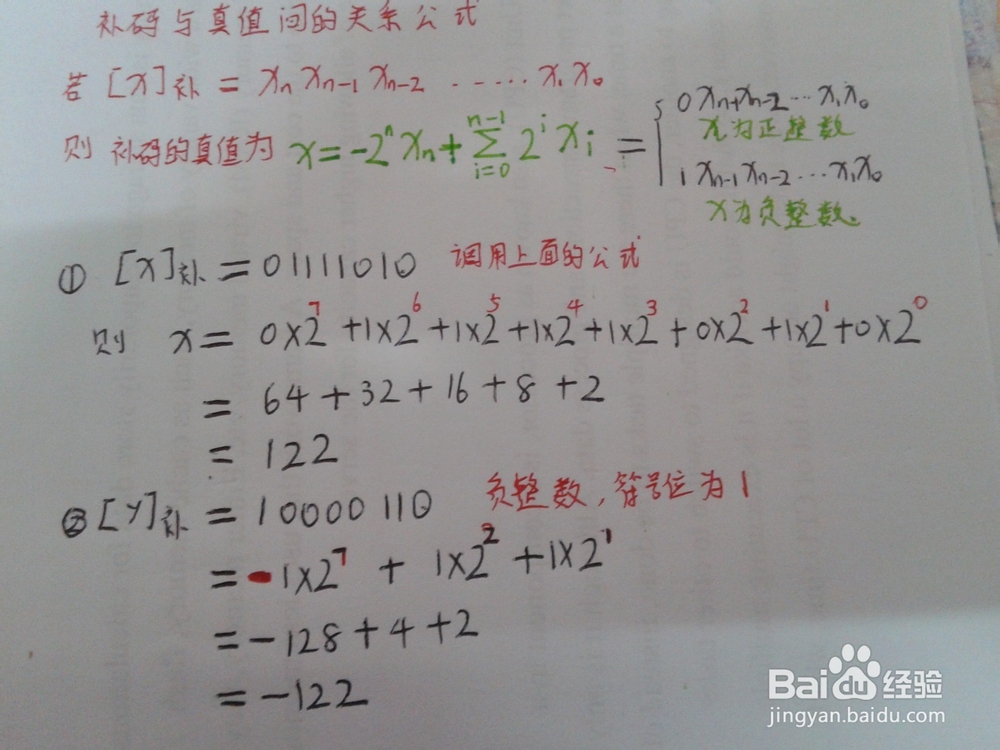 补码与真值间的关系公式
若 [x]补 = xₙ xₙ₋₁ xₙ₋₂ ------ x₁ x₀
则 补码的真值为 x = -2ⁿxₙ + Σ(i=0, n-1) 2ⁱ xᵢ = { 0 xₙ₋₁ xₙ₋₂ ··· x₁ x₀
x为正整数
1 xₙ₋₁ xₙ₋₂ ··· x₁ x₀
x为负整数.
① [x]补 = 01111010 调用上面的公式
则 x = 0×2⁷ + 1×2⁶ + 1×2⁵ + 1×2⁴ + 1×2³ + 0×2² + 1×2¹ + 0×2⁰
= 64 + 32 + 16 + 8 + 2
= 122
② [y]补 = 10000110 负整数,符号位为1
= -1×2⁷ + 1×2² + 1×2¹
= -128 + 4 + 2
= -122
Baidu经验
jingyan.baidu.com